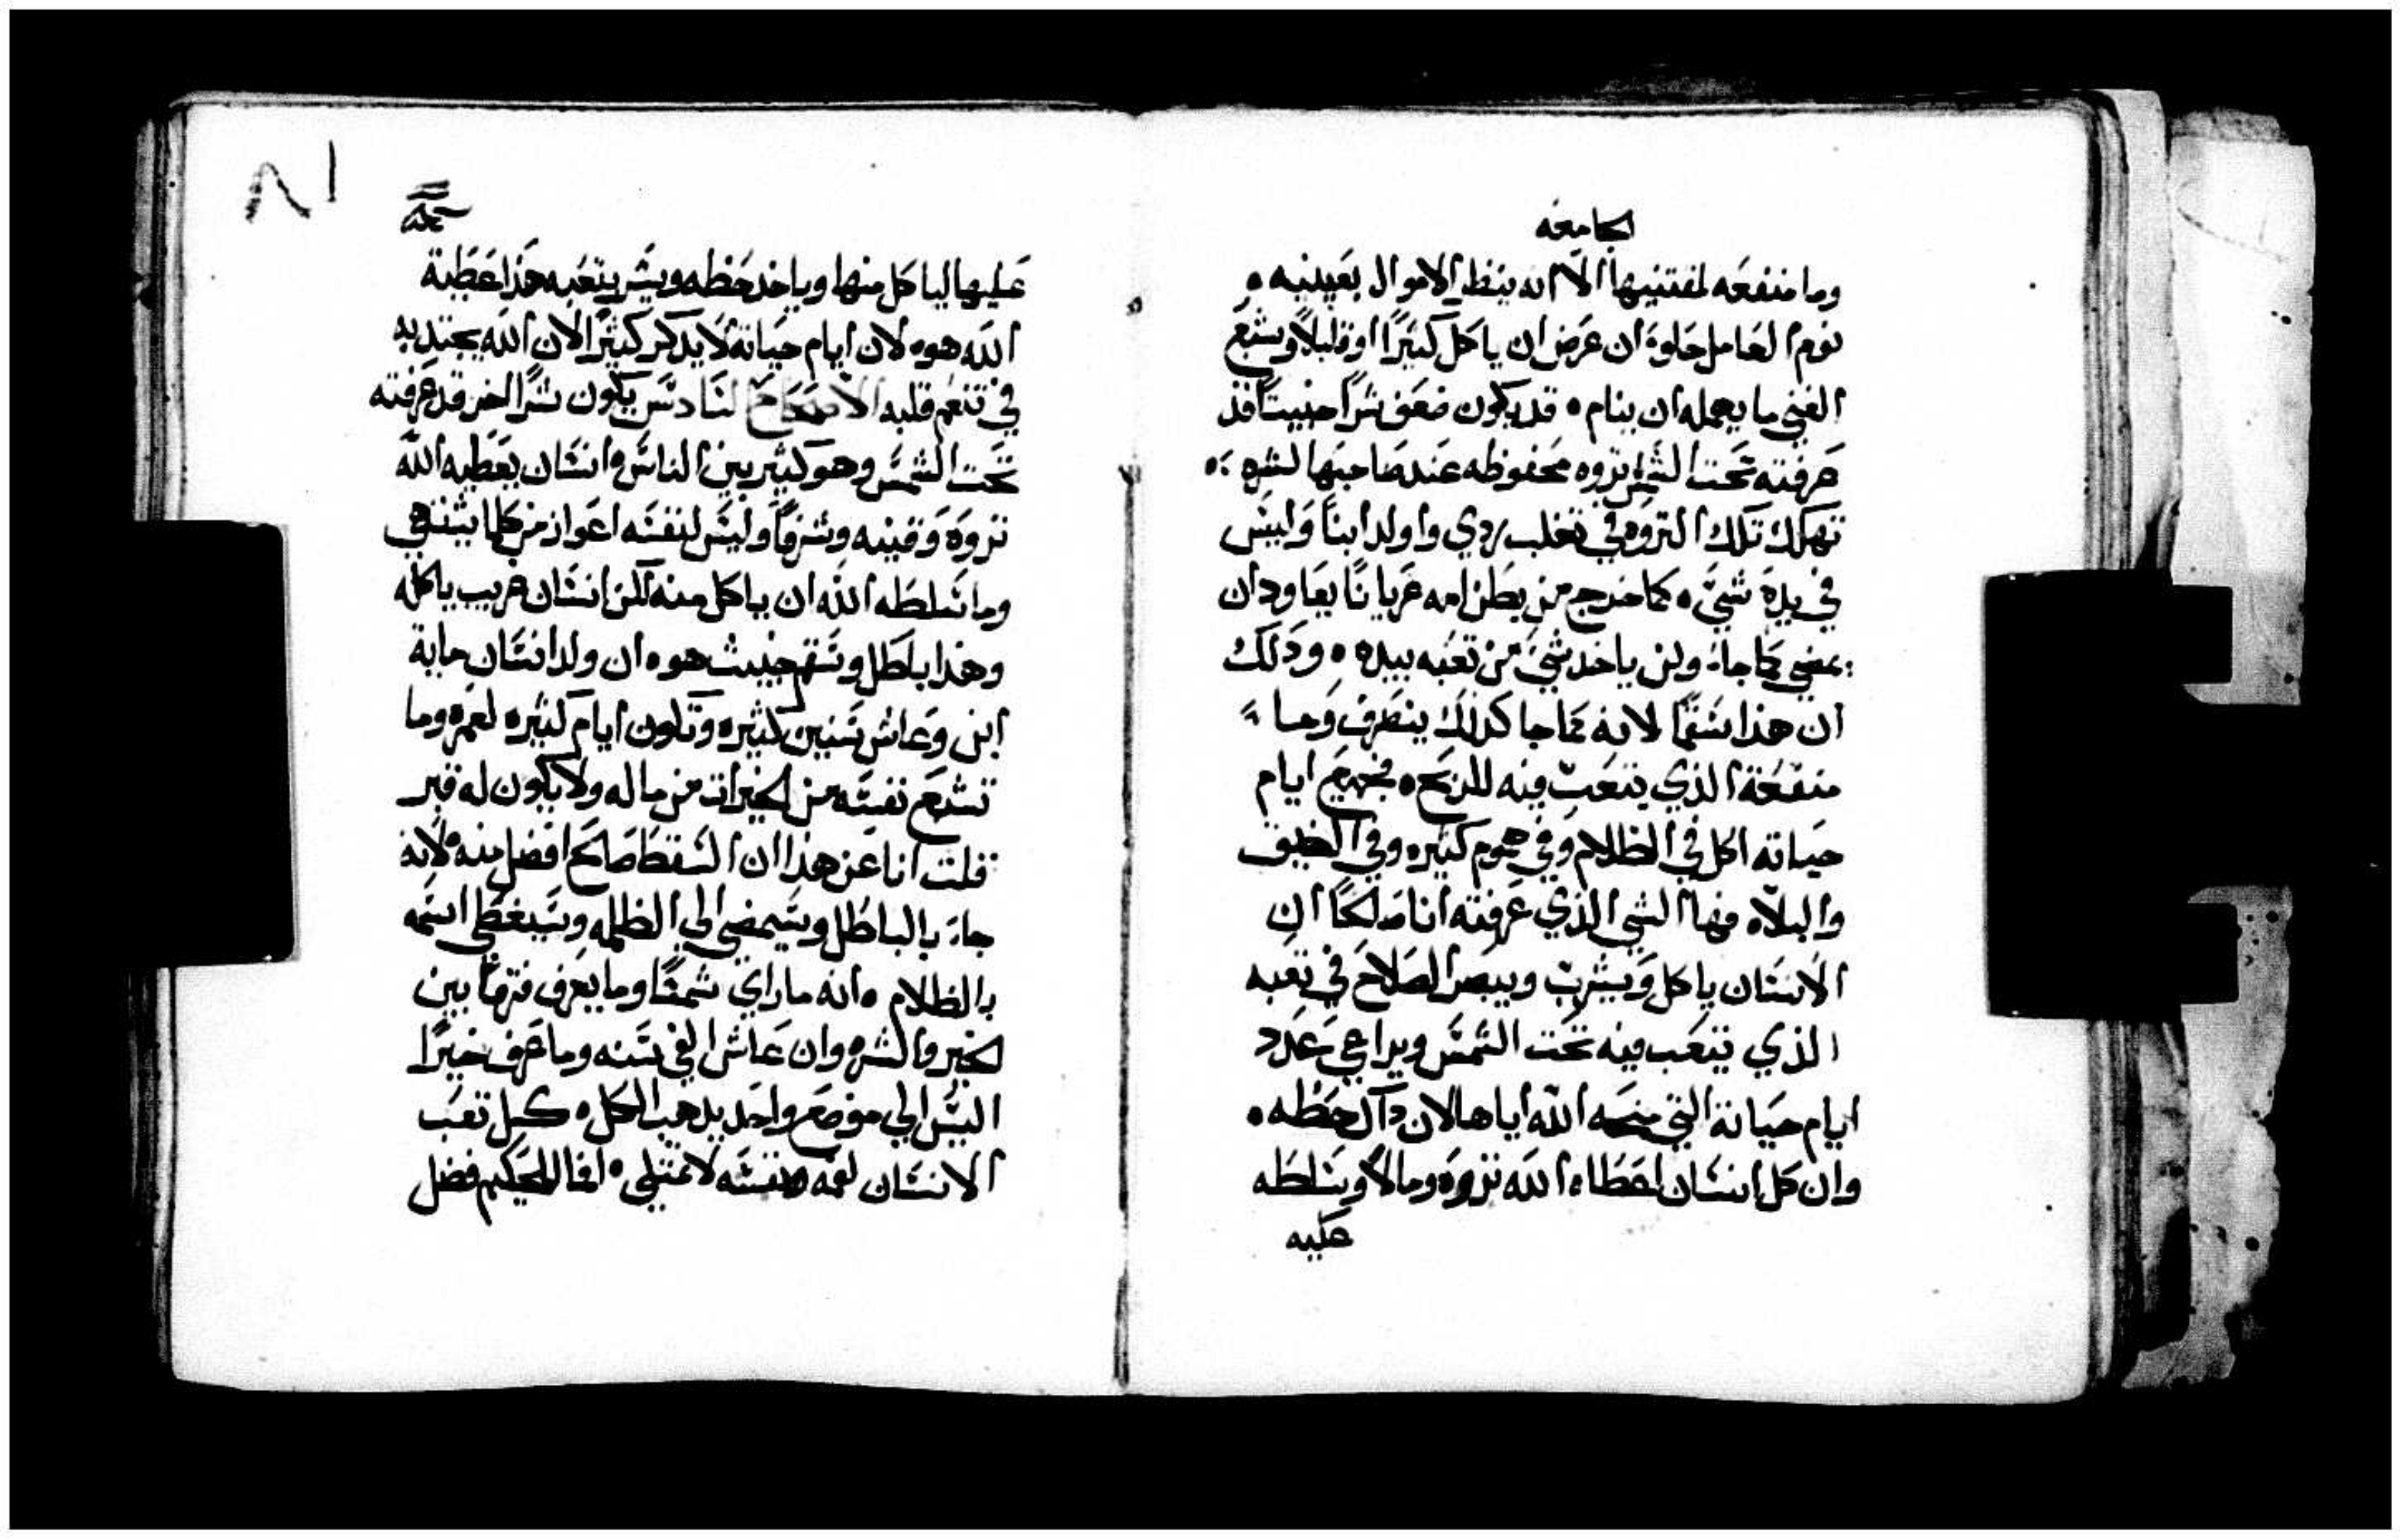 الجامعه
وما منفعه لمقتنيها الا انه ينظر الاموال بعينيه ٥
نوم العامل حلوة ان عرض ان ياكل كثيرًا او قليلاً وشبع
الغني ما يهمله ان ينام ٥ قد يكون ضعف شرًا خبيثًا قد
عرفته تحت الشمس ثروه محفوظه عند صاحبها لشره ٥
تهلك تلك الثروه في تغلب ردي واولد ابنًا وليس
في يدة شيً ٥ كما خرج من بطن امه عريانًا يعاود ان
يمضي كما جاء ولن ياخد شيً من تعبه بيده ٥ ودلك
ان هذا سقمًا لانه كما جا كذلك ينصرف وما
منفعة الذي يتعب فيه للريح ٥ فجميع ايام
حياته اكل في الظلام وفي هموم كثيره وفي الضيق
والبلاه فها الشي الذي عرفته انا صالحًا ان
الانسان ياكل ويشرب ويبصر الصلاح في تعبه
الذي يتعب فيه تحت الشمس ويراعي عدد
ايام حياتة التي منحه الله اياها لان داك حظه ٥
وان كل انسان اعطاه الله ثروه ومالاً وسلطه
عليه
٨١
عليها لياكل منها وياخد حظه ويسر بتعبه هذا عطية
الله هو ٥ لان ايام حياتة لا يدكر كثيرًا لان الله يجتدبه
في تنعم قلبه الاصحاح السادس يكون شرًا اخر قد عرفته
تحت الشمس وهو كثير بين الناس وانسان يعطيه الله
ثروة وقنيه وشرفًا وليس لنفسه اعواز من كلما يشتهي
وما سلطه الله ان ياكل منه لكن انسان غريب ياكله
وهذا باطل وسقم خبيث هو ٥ ان ولد انسان ماية
ابن وعاش سنين كثيره وتكون ايام كثيره لعمره وما
تشبع نفسه من الخيرات من ماله ولا يكون له قبر
فقلت انا عن هذا ان السقط صالح افضل منه ٥ لانه
جاء بالباطل وسيمضي الي الظلمه وسيغطى اسمه
بالظلام ٥ انه ما راي شمسًا وما يعرف فرقًا بين
الخير والشر ٥ وان عاش الفي سنه وما عرف خيرًا
اليس الي موضع واحد يدهب الكل ٥ كل تعب
الانسان لفمه ونفسه لا تمتلي ٥ لما للحكيم فضل